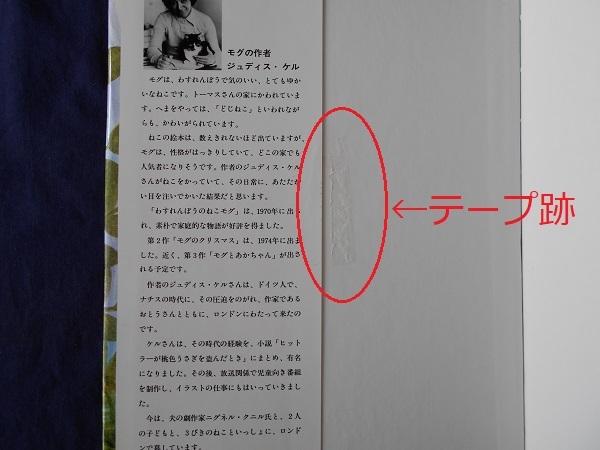 モグの作者
ジュディス・ケル
モグは、わすれんぼうで気のいい、とてもゆか
いなねこです。トーマスさんの家にかわれていま
す。へまをやっては、「どじねこ」といわれなが
らも、かわいがられています。
ねこの絵本は、数えきれないほど出ていますが、
モグは、性格がはっきりしていて、どこの家でも
人気者になりそうです。作者のジュディス・ケル
さんがねこをかっていて、その日常に、あたたか
い目を注いでかいた結果だと思います。
「わすれんぼうのねこモグ」は、1970年に出さ
れ、素朴で家庭的な物語が好評を得ました。
第2作「モグのクリスマス」は、1974年に出ま
した。近く、第3作「モグとあかちゃん」が出さ
れる予定です。
作者のジュディス・ケルさんは、ドイツ人で、
ナチスの時代に、その圧迫をのがれ、作家である
おとうさんとともに、ロンドンにわたって来たの
です。
ケルさんは、その時代の経験を、小説「ヒット
ラーが桃色うさぎを盗んだとき」にまとめ、有名
になりました。その後、放送関係で児童向き番組
を制作し、イラストの仕事にもはいっていきまし
た。
今は、夫の劇作家ニグネル・クニル氏と、2人
の子どもと、3びきのねこといっしょに、ロンド
ンで暮しています。
←テープ跡